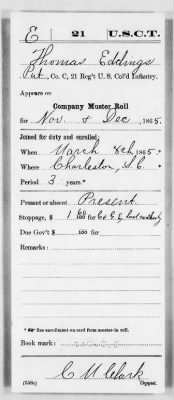 E 21 U.S.C.T.
Thomas Eddings
Pvt, Co. C, 21 Reg't U. S. Col'd Infantry.
Appears on
Company Muster Roll
for Nov. & Dec, 1865.
Joined for duty and enrolled:
When March 8th, 1865.*
Where Charleston, S.C. *
Period 3 years.*
Present or absent Present
Stoppage, $ 1 00/100 for
Due Gov't $ 100 for
Remarks:
*See enrollment on card from muster-in roll.
Book mark:
C M Clark
(358c) Copyist.